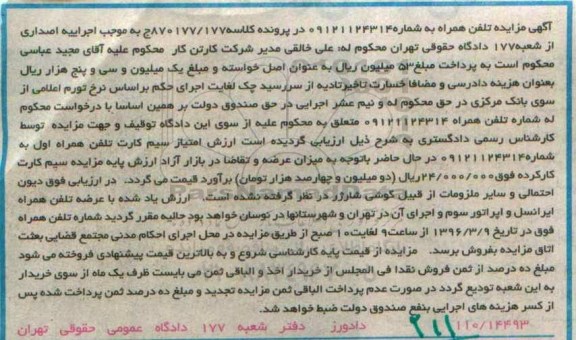 آگهی مزایده تلفن همراه به شماره۰۹۱۲۱۱۲۴۳۱۴ در پرونده کلاسه۸۷۰۱۷۷/۱۷۷ج به موجب اجراییه اصداری
از شعبه۱۷۷ دادگاه حقوقی تهران محکوم له: علی خالقی مدیر شرکت کارتن کار محکوم علیه آقای مجید عباسی
محکوم است به پرداخت مبلغ۵۳ میلیون ریال به عنوان اصل خواسته و مبلغ یک میلیون و سی و پنج هزار ریال
بعنوان هزینه دادرسی و مضافا خسارت تاخیرتادیه از سررسید چک لغایت اجرای حکم براساس نرخ تورم اعلامی از
سوی بانک مرکزی در حق محکوم له و نیم عشر اجرایی در حق صندوق دولت بر همین اساسا با درخواست محکوم
له شماره تلفن همراه ۰۹۱۲۱۱۲۴۳۱۴ متعلق به محکوم علیه از سوی این دادگاه توقیف و جهت مزایده توسط
کارشناس رسمی دادگستری به شرح ذیل ارزیابی گردیده است ارزش امتیاز سیم کارت تلفن همراه اول به
شماره۰۹۱۲۱۱۲۴۳۱۴ در حال حاضر باتوجه به میزان عرضه و تقاضا در بازار آزاد ارزش پایه مزایده سیم کارت
کارکرده فوق۲۴/۰۰۰/۰۰۰ریال (دو میلیون و چهارصد هزار تومان) برآورد قیمت می گردد. در ارزیابی فوق دیون
احتمالی و سایر ملزومات از قبیل گوشی شارژر در نظر گرفته نشده است. ارزش یاد شده با عرضه تلفن همراه
ایرانسل و اپراتور سوم و اجرای آن در تهران و شهرستانها در نوسان خواهد بود حالیه مقرر گردید شماره تلفن همراه
فوق در تاریخ ۱۳۹۶/۳/۹ از ساعت۹ لغایت۱۰ صبح از طریق مزایده در محل اجرای احکام مدنی مجتمع قضایی بعثت
اتاق مزایده بفروش برسد. مزایده از قیمت پایه کارشناسی شروع و به بالاترین قیمت پیشنهادی فروخته می شود
مبلغ ده درصد از ثمن فروش نقدا فی المجلس از خریدار اخذ و الباقی ثمن می بایست ظرف یک ماه از سوی خریدار
به این شعبه تودیع گردد در صورت عدم پرداخت الباقی ثمن مزایده تجدید و مبلغ ده درصد ثمن پرداخت شده پس
از کسر هزینه های اجرایی بنفع صندوق دولت ضبط خواهد شد.
۱۱۰/۱۴۴۹۳ دادورز دفتر شعبه ۱۷۷ دادگاه عمومی حقوقی تهران